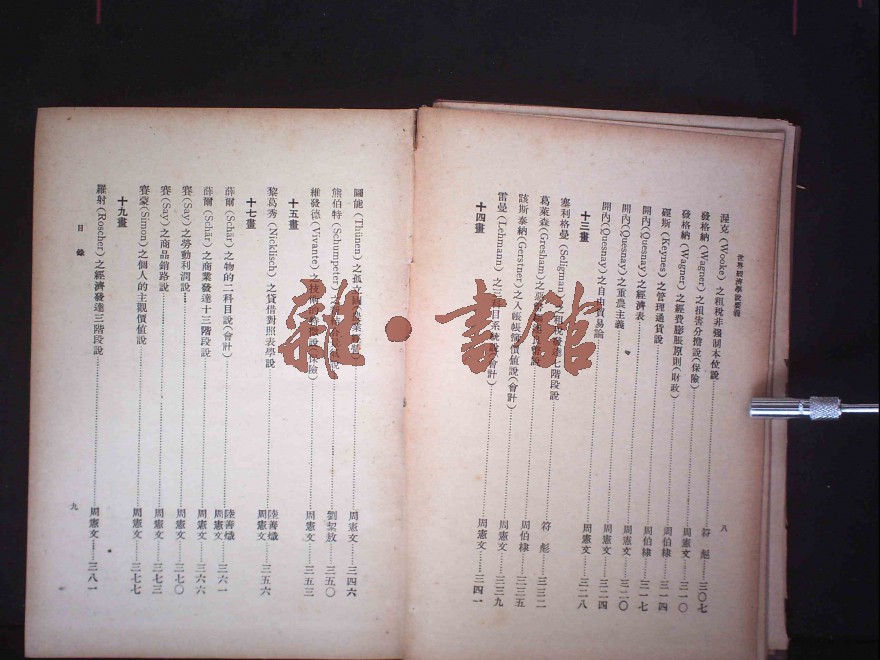 世界經濟學說要義
八
渥克(Wooke)之租稅非強制本位說 符彪 三〇七
發格納(Wagner)之損害分擔說(保險) 周憲文 三一〇
發格納(Wagner)之經費膨脹原則(財政) 周伯棣 三一四
鏗斯(Keynes)之管理通貨說 周伯棣 三一七
開內(Quesnay)之經濟表 周憲文 三二〇
開內(Quesnay)之重農主義 周憲文 三二四
開內(Quesnay)之自由貿易論 周憲文 三二八
十三畫
塞利格曼(Seligman)之 發達七階段說 符彪 三三二
葛萊森(Gresham)之 周伯棣 三三五
該斯泰納(Gerstner)之人帳帳簿價值說(會計) 周憲文 三三九
雷曼(Lehmann)之三科目系統說(會計) 周憲文 三四一
十四畫
圖能(Thünen)之孤立國 周憲文 三四六
熊伯特(Schumpeter)之 劉絜敖 三五〇
維發德(Vivante)之技術的 (保險) 周憲文 三五三
十五畫
黎葛秀(Nicklisch)之貸借對照表學說 陸善熾 周憲文 三五六
十七畫
薛爾(Schär)之物的二科目說(會計) 陸善熾 周憲文 三六一
薛爾(Schär)之商業發達十三階段說 周憲文 三六六
賽(Say)之勞動利潤說 周憲文 三七〇
賽(Say)之商品銷路說 周憲文 三七三
賽蒙(Simon)之個人的主觀價值說 周憲文 三七七
十九畫
羅射(Roscher)之經濟發達三階段說 周憲文 三八一
目錄
九
雜·書館